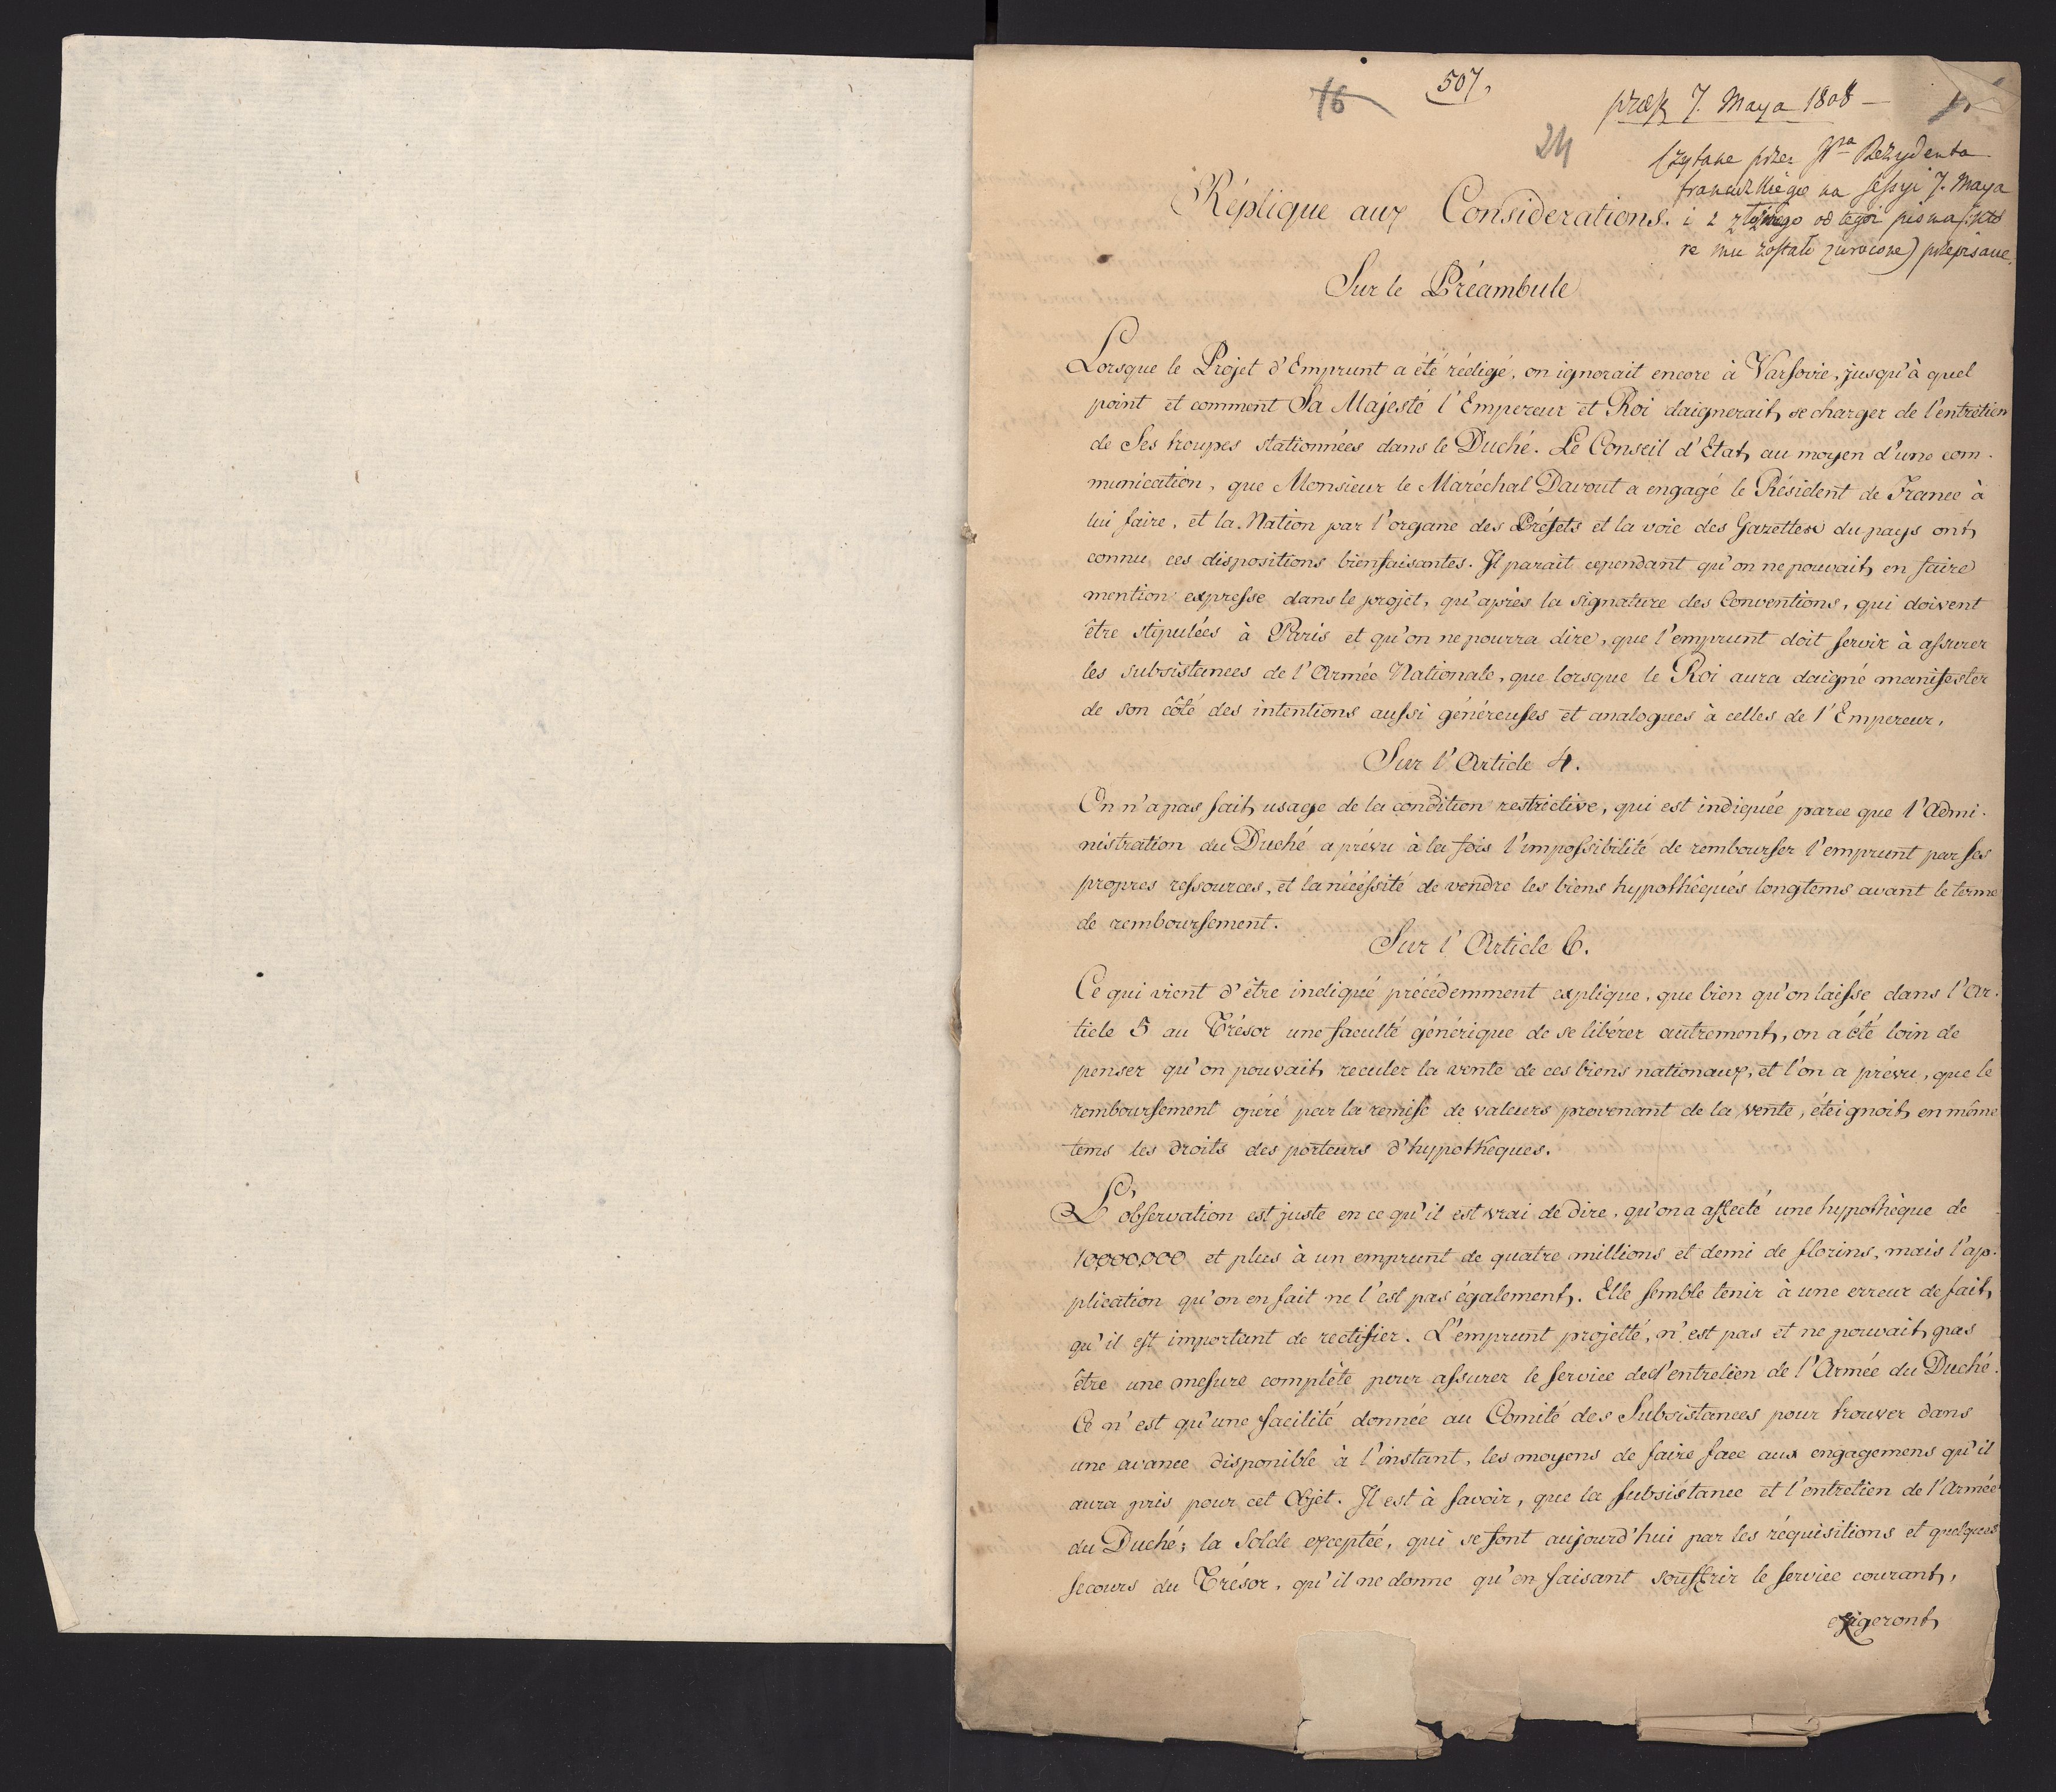 16
507.
24
præs. 7. Maya 1808 —
Czytane przez JPana Rezydenta
francuzkiego na sessyi 7. Maya
i z złożonego od tegoż pisma (któ
re mu zostało zwrócone) przepisane.
Réplique aux Considerations.
Sur le Préambule
Lorsque le Projet d'Emprunt a été rédigé, on ignorait encore à Varsovie, jusqu'à quel
point et comment Sa Majesté l'Empereur et Roi daignerait se charger de l'entretien
de Ses troupes stationnées dans le Duché. Le Conseil d'Etat, au moyen d'une com-
munication, que Monsieur le Maréchal Davout a engagé le Résident de France à
lui faire, et la Nation par l'organe des Préfets et la voie des Gazettes du pays ont
connu ces dispositions bienfaisantes. Il parait cependant qu'on ne pouvait en faire
mention expresse dans le projet, qu'après la signature des Conventions, qui doivent
être stipulées à Paris et qu'on ne pourra dire, que l'emprunt doit servir à assurer
les subsistances de l'Armée Nationale, que lorsque le Roi aura daigné manifester
de son côté des intentions aussi généreuses et analogues à celles de l'Empereur.
Sur l'Article 4.
On n'a pas fait usage de la condition restrictive, qui est indiquée parce que l'Admi-
nistration du Duché a prévu à la fois l'impossibilité de rembourser l'emprunt par ses
propres ressources, et la nécéssité de vendre les biens hypothéqués longtems avant le terme
de remboursement.
Sur l'Article 6.
Ce qui vient d'être indiqué précédemment explique, que bien qu'on laisse dans l'Ar-
ticle 5 au Trésor une faculté générique de se libérer autrement, on a été loin de
penser qu'on pouvait reculer la vente de ces biens nationaux, et l'on a prévu, que le
remboursement opéré par la remise de valeurs provenant de la vente, éteignoit en même
tems les droits des porteurs d'hypothêques.
L'observation est juste en ce qu'il est vrai de dire, qu'on a affecté une hypothèque de
10,000,000 et plus à un emprunt de quatre millions et demi de florins, mais l'ap-
plication qu'on en fait ne l'est pas également. Elle semble tenir à une erreur de fait,
qu'il est important de rectifier. L'emprunt projetté, n'est pas et ne pouvait pas
être une mesure complète pour assurer le service de l'entretien de l'Armée du Duché.
Ce n'est qu'une facilité donnée au Comité des Subsistances pour trouver dans
une avance disponible à l'instant, les moyens de faire face aux engagemens qu'il
aura pris pour cet Objet. Il est à savoir, que la subsistance et l'entretien de l'Armée
du Duché; la Solde exceptée, qui se font aujourd'hui par les réquisitions et quelques
secours du Trésor, qu'il ne donne qu'en faisant souffrir le service courant,
exigeront